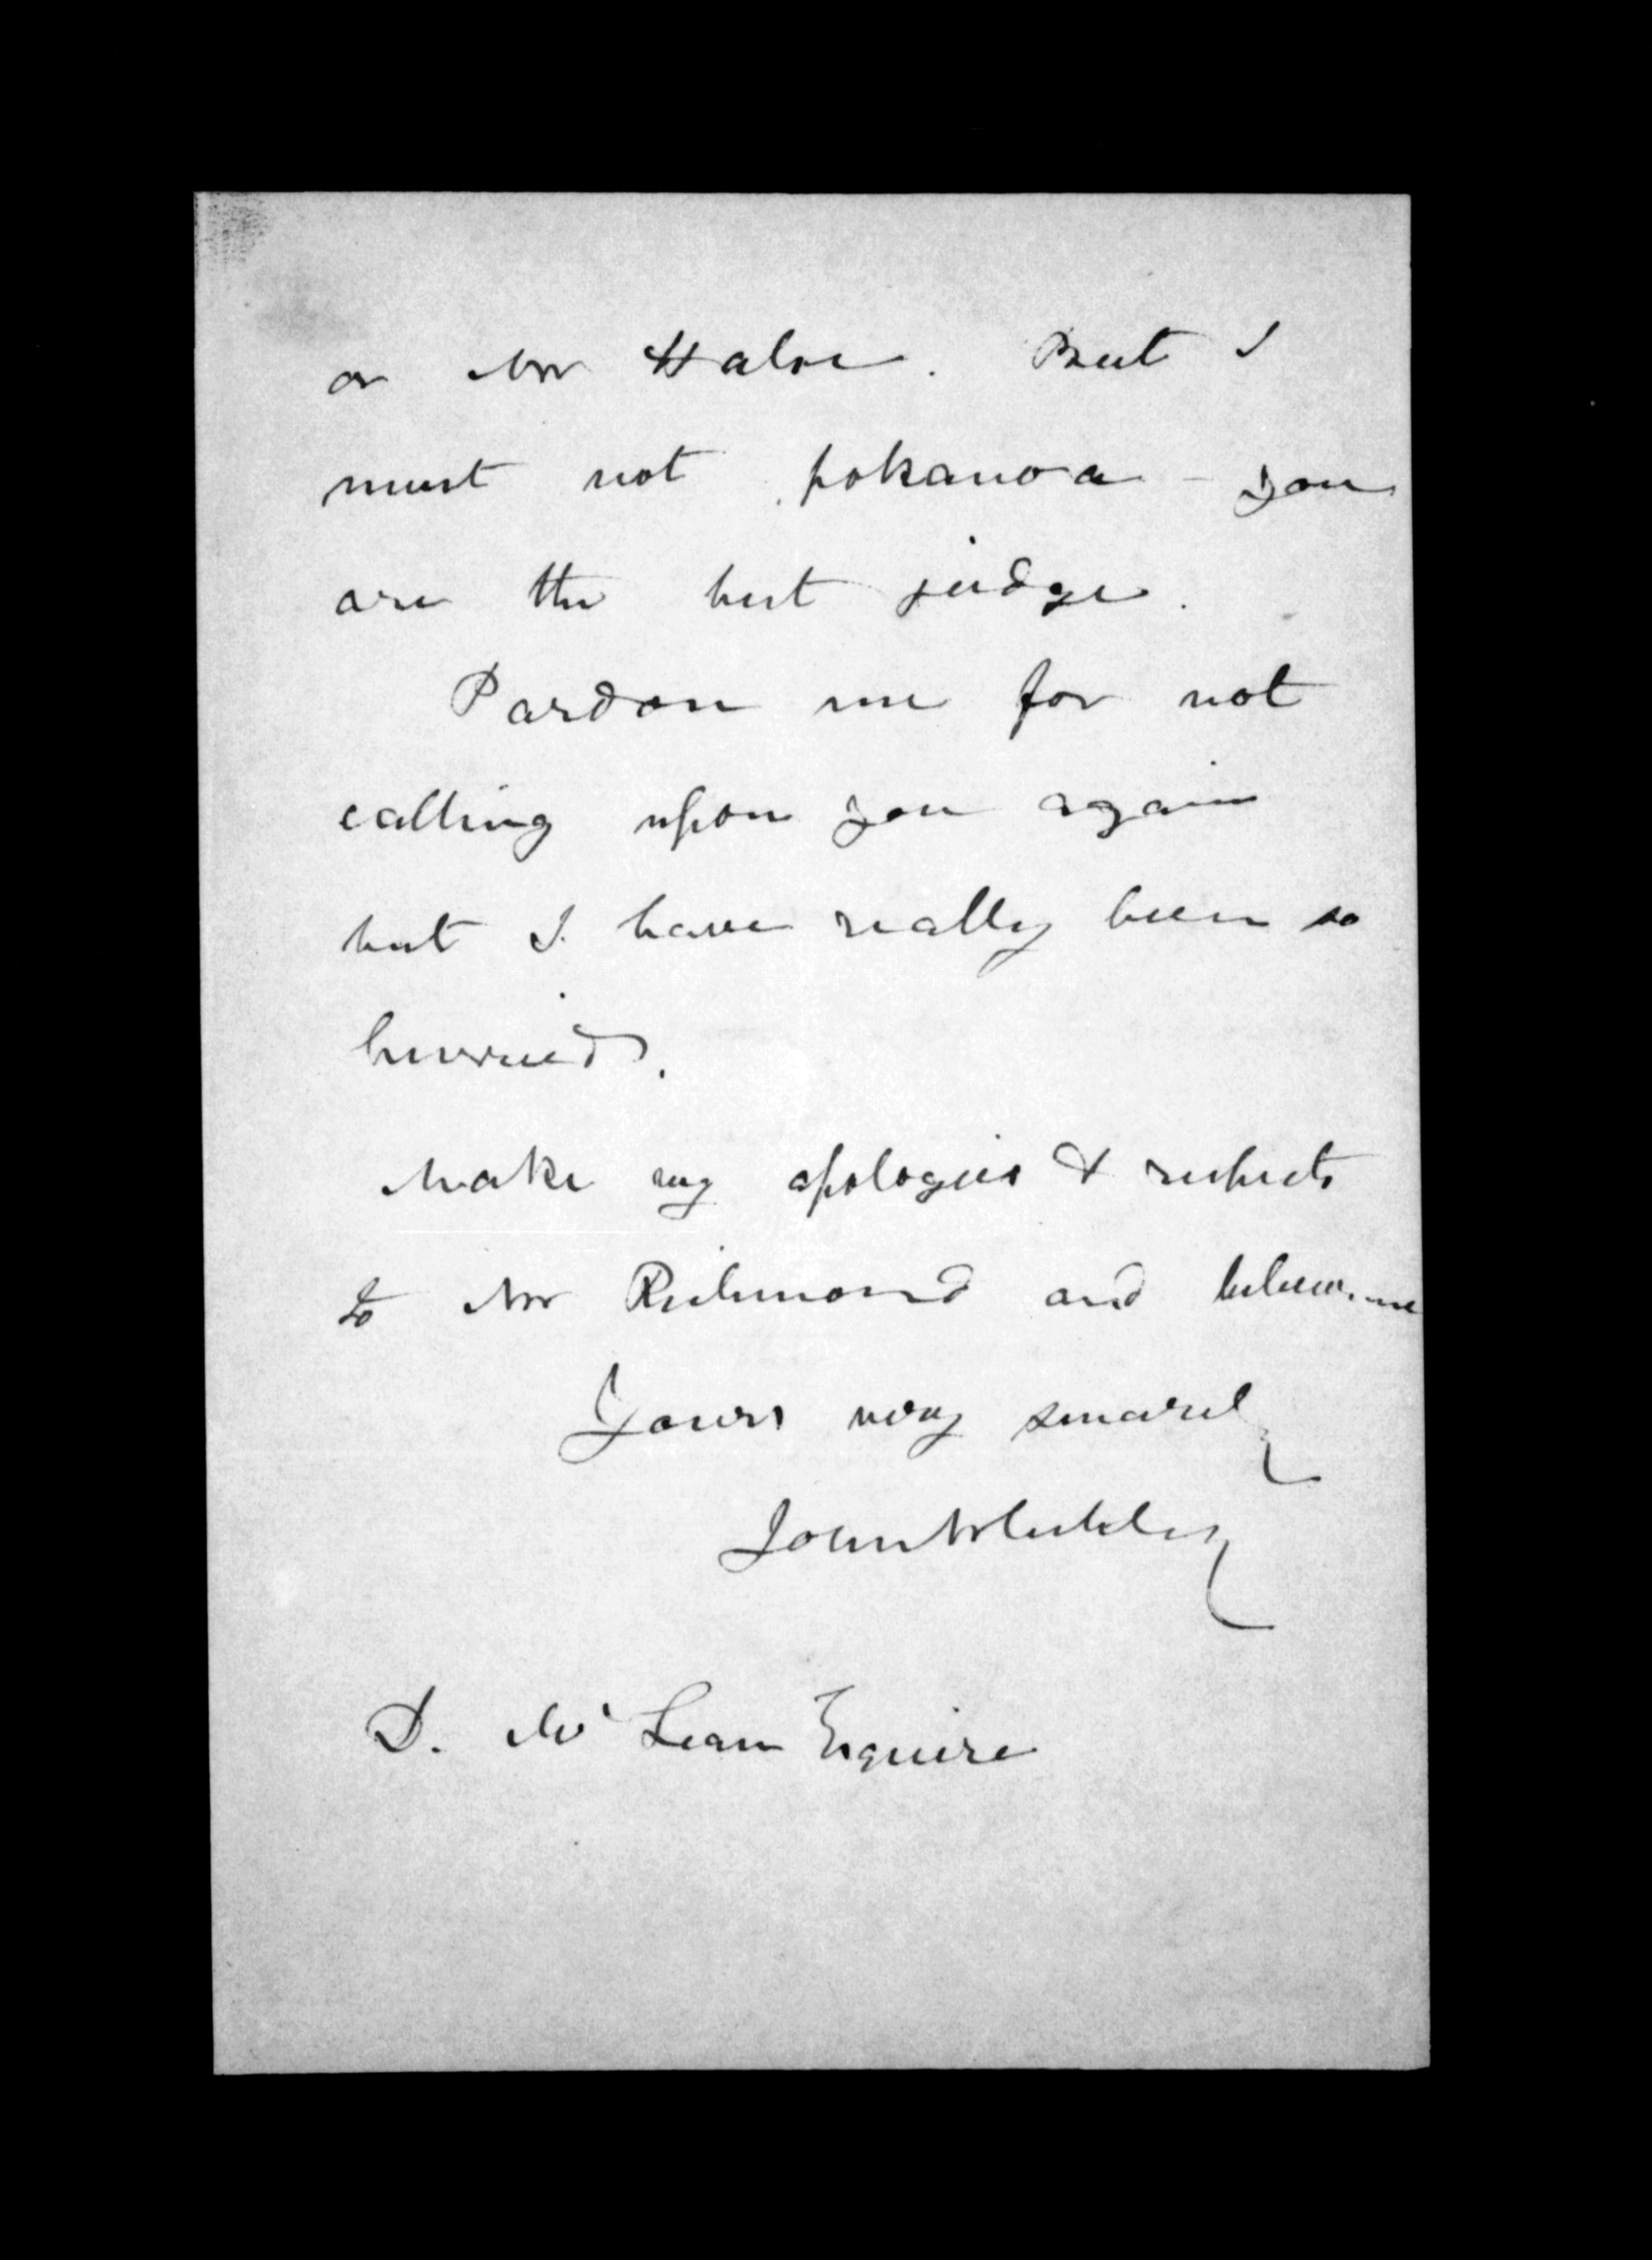 or Mr Halse. But I
must not pokanoa - you
are the best judge.
Pardon me for not
calling upon you again
but I have really been so
hurried.
Make my apologies & respects
to Mr Richmond and believe me
Yours very sincerely
John Whiteley
D. McLean Esquire